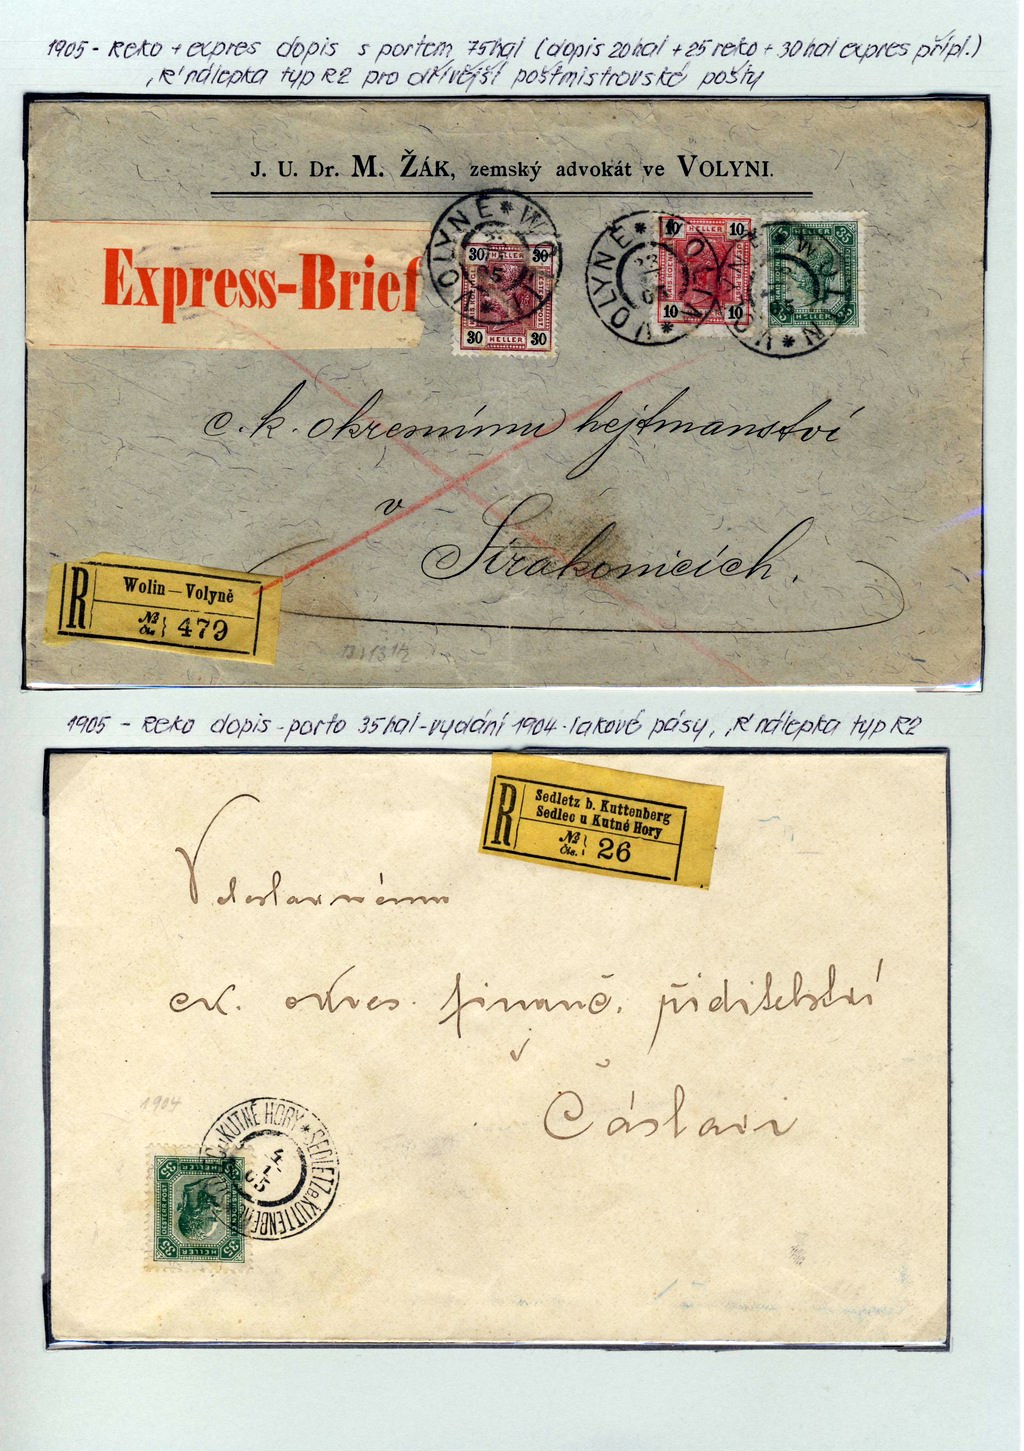 1905 - Reko + expres dopis s portem 75hal (dopis 20hal + 25 reko + 30hal expres přípl.)
,R' nálepka typ R2 pro dřívější poštmistrovské pošty
J. U. Dr. M. ŽÁK, zemský advokát ve VOLYNI.
Express-Brief
VOLYNĚ * WOLIN *
30 30
HELLER
30 HELLER 30
VOLYNĚ * WOLIN *
10 HELLER 10
10 HELLER 10
VOLYNĚ * WOLIN *
35 HELLER 35
HELLER
c. k. okresnímu hejtmanství
v
Strakonicích.
R
Wolin – Volyně
№
čís. 479
13:13 1/2
1905 - Reko dopis - porto 35hal - vydání 1904 - lakové pásy, ,R' nálepka typ R2
R
Sedletz b. Kuttenberg
Sedlec u Kutné Hory
№
čís. 26
Veleslavnému
ck. okres. financ. řiditelství
v
Čáslavi
1904
U KUTNÉ HORY * SEDLETZ B. KUTTENBERG
4
1
05
35 HELLER 35
35 HELLER 35